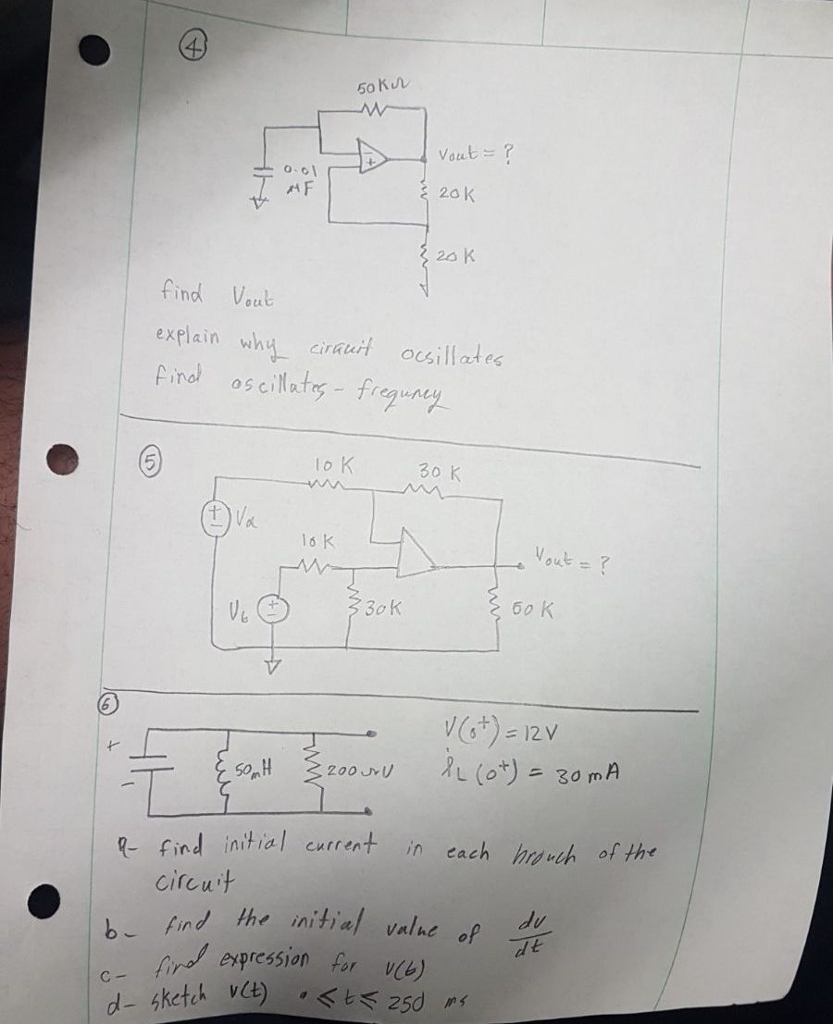 4
50KΩ
Vout = ?
0.01
μF
20K
20K
find Vout
explain why circuit ocsillates
find oscillates - frequncy
5
10 K 30 K
+
-
Va
10K
Vout = ?
Vb
+
-
30K
50K
6
V(0⁺) = 12V
+
-
50mH
200Ω
iL (0⁺) = 30 mA
a- find initial current in each branch of the
circuit
b- find the initial value of dv/dt
c- find expression for v(t)
d- sketch v(t) 0 ≤ t ≤ 250 ms